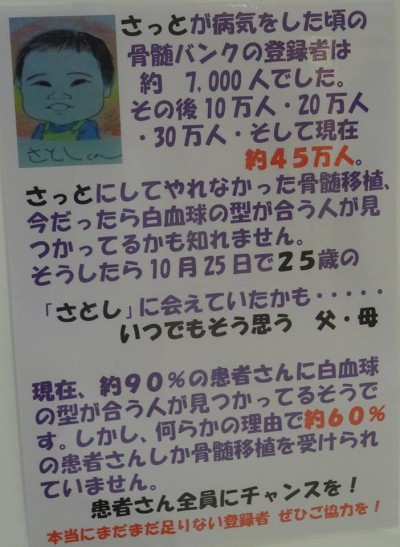 さっとが病気をした頃の
骨髄バンクの登録者は
約 7,000人でした。
その後10万人・20万人
・30万人・そして現在
約45万人。
さとしくん
さっとにしてやれなかった骨髄移植、
今だったら白血球の型が合う人が見
つかってるかも知れません。
そうしたら10月25日で25歳の
「さとし」に会えていたかも・・・・・
いつでもそう思う 父・母
現在、約90%の患者さんに白血球
の型が合う人が見つかってるそうで
す。しかし、何らかの理由で約60%
の患者さんしか骨髄移植を受けられ
ていません。
患者さん全員にチャンスを！
本当にまだまだ足りない登録者 ぜひご協力を！